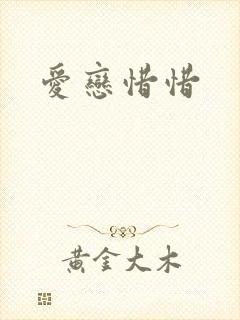 愛戀惜惜
黃金大木